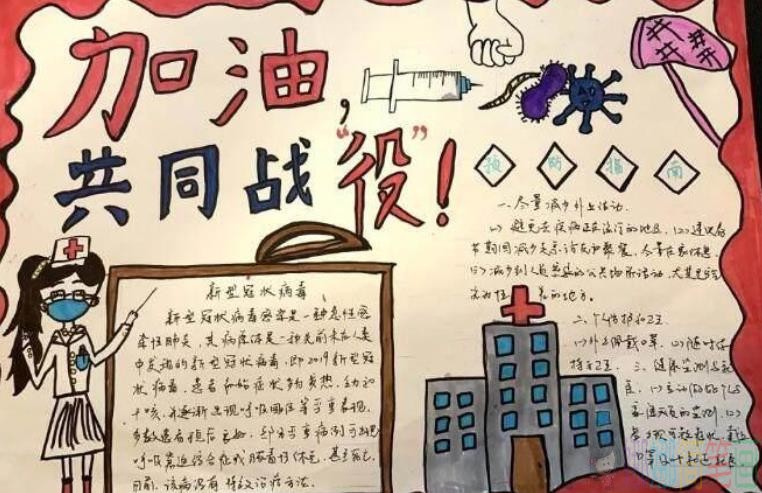 加油，
共同战“役”！
预防指南
一、尽量减少外出活动.
(1) 避免去疾病正在流行的地区. (2) 建议春
节期间减少走亲访友和聚餐，尽量在家休息.
(3) 减少到人员密集的公共场所活动，尤其是空
气 的地方。
二、个人防护和卫
(1) 外出佩戴口罩. (2) 随时保
持手卫生. 三、健康监测与
(1) 主动
新型冠状病毒
新型冠状病毒感染是一种急性感
染性肺炎，其病原体是一种先前未在人类
中发现的新型冠状病毒，即2019新型冠
状病毒，患者初始症状多为发热、乏力和
干咳，并逐渐出现呼吸困难等严重表现.
多数患者预后良好，部分严重病例可出现
呼吸窘迫综合征或脓毒性休克，甚至死亡.
目前，该病没有特效治疗方法.